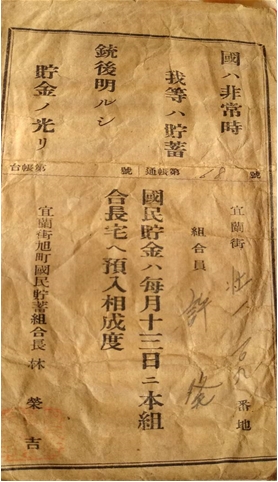 國ハ非常時
我等ハ貯蓄
銃後明ルシ
貯金ノ光リ
號 第帳通 號 第帳台
宜蘭街 番地
組合員 許
國民貯金ハ每月十三日ニ本組
合長宅ヘ預入相成度
宜蘭街旭町國民貯蓄組合長 林 榮 吉